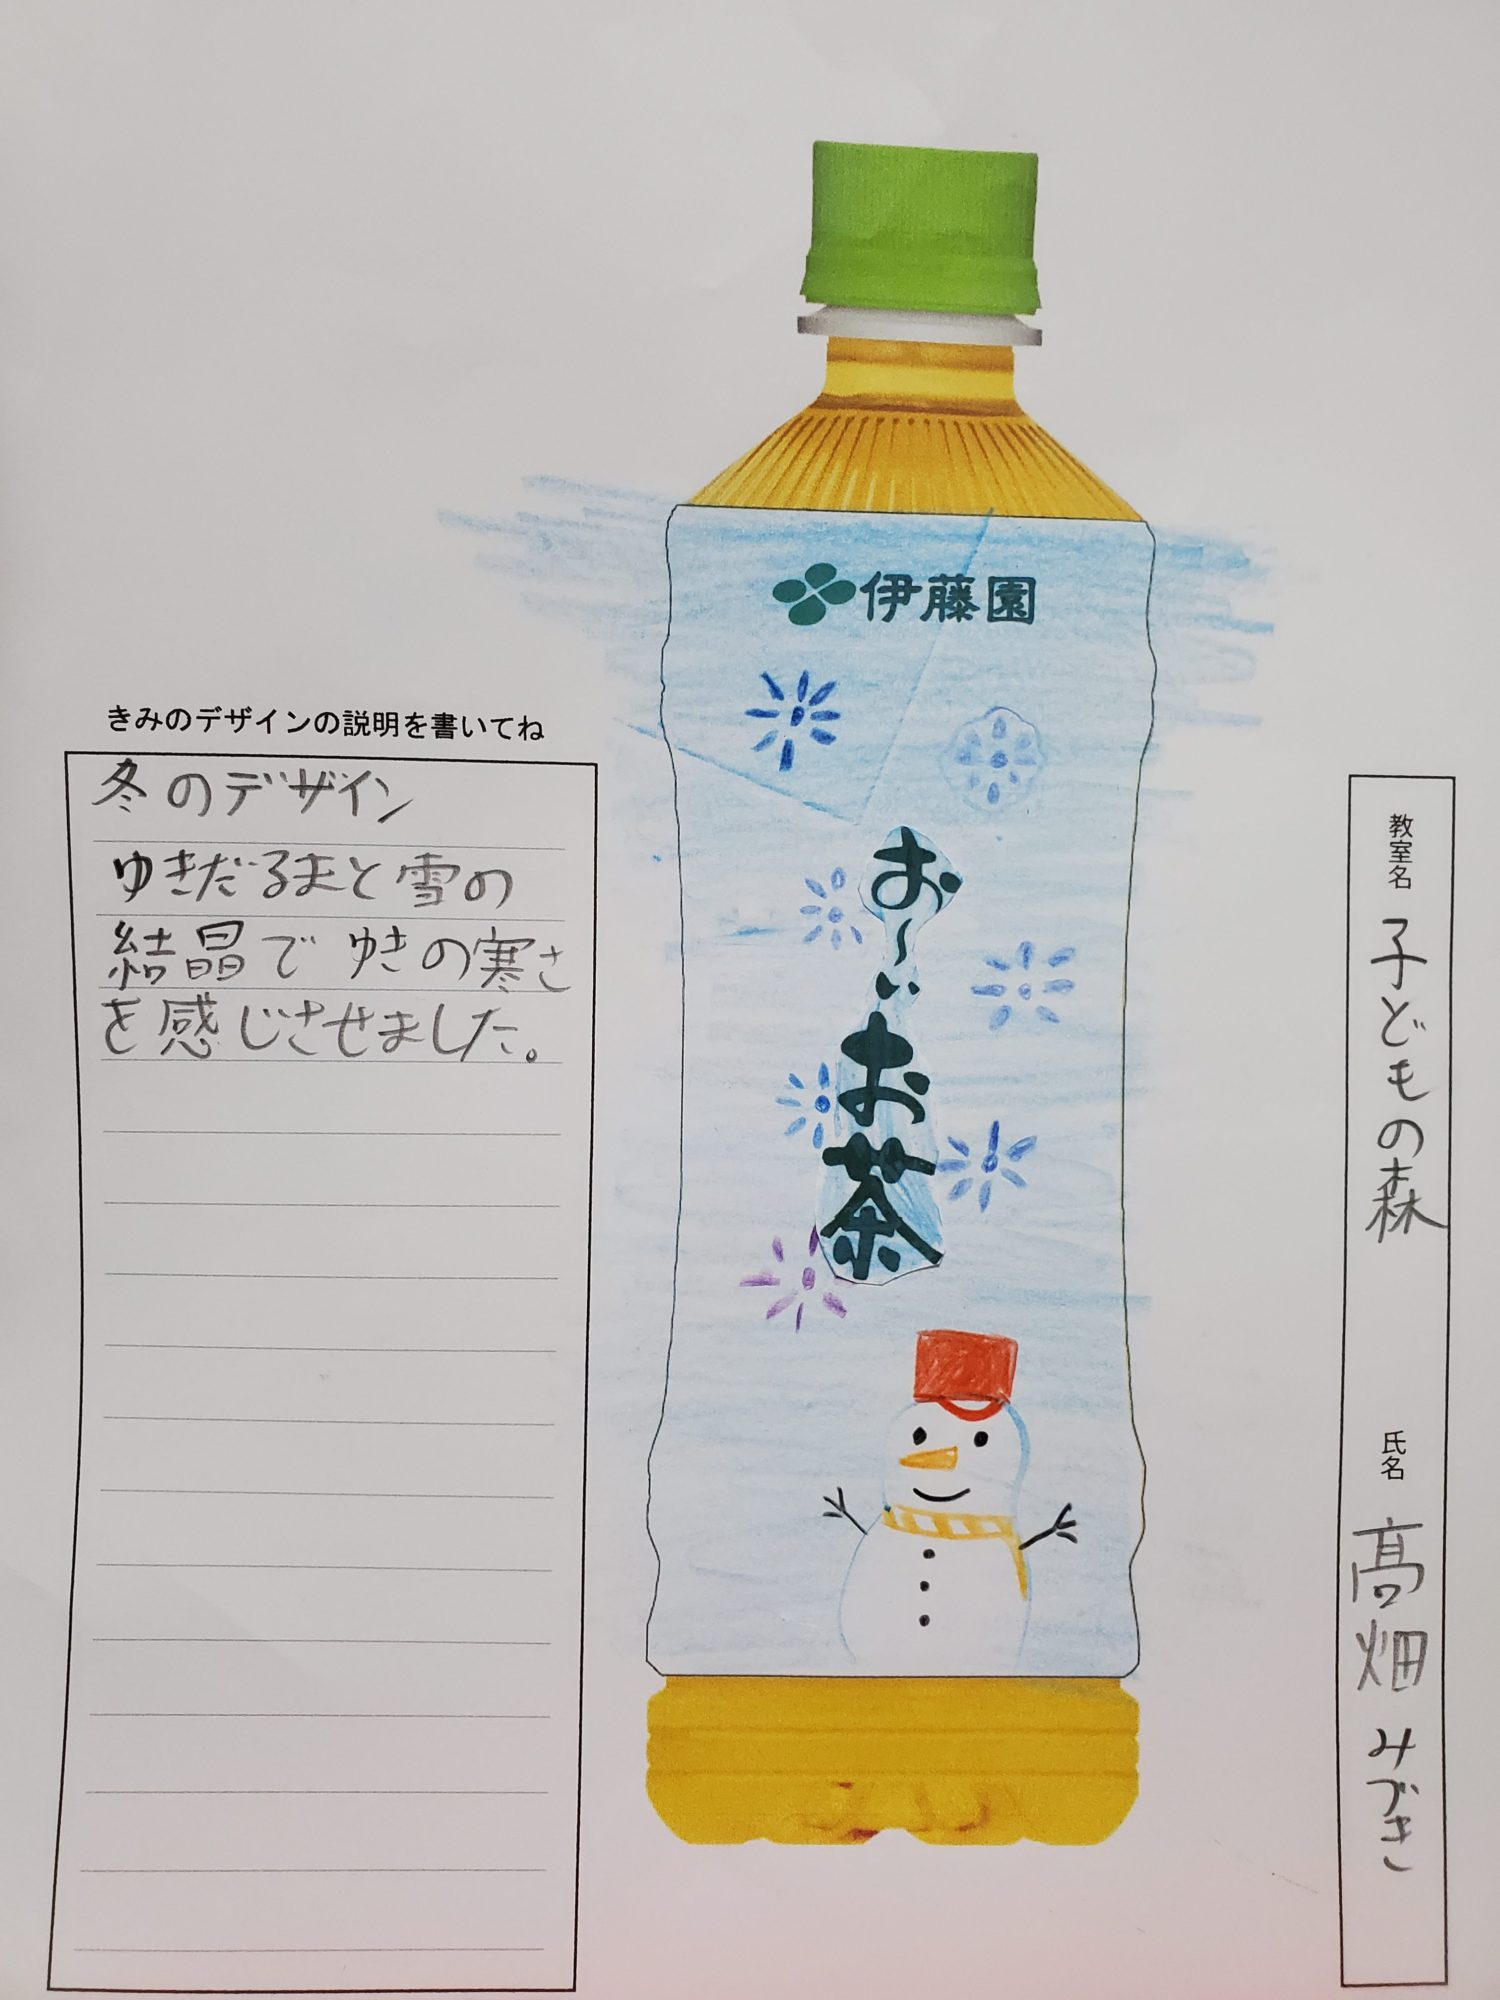 伊藤園
お～い
お茶
きみのデザインの説明を書いてね
冬のデザイン
ゆきだるまと雪の
結晶でゆきの寒さ
を感じさせました。
教室名 子どもの森
氏名 高畑みづき